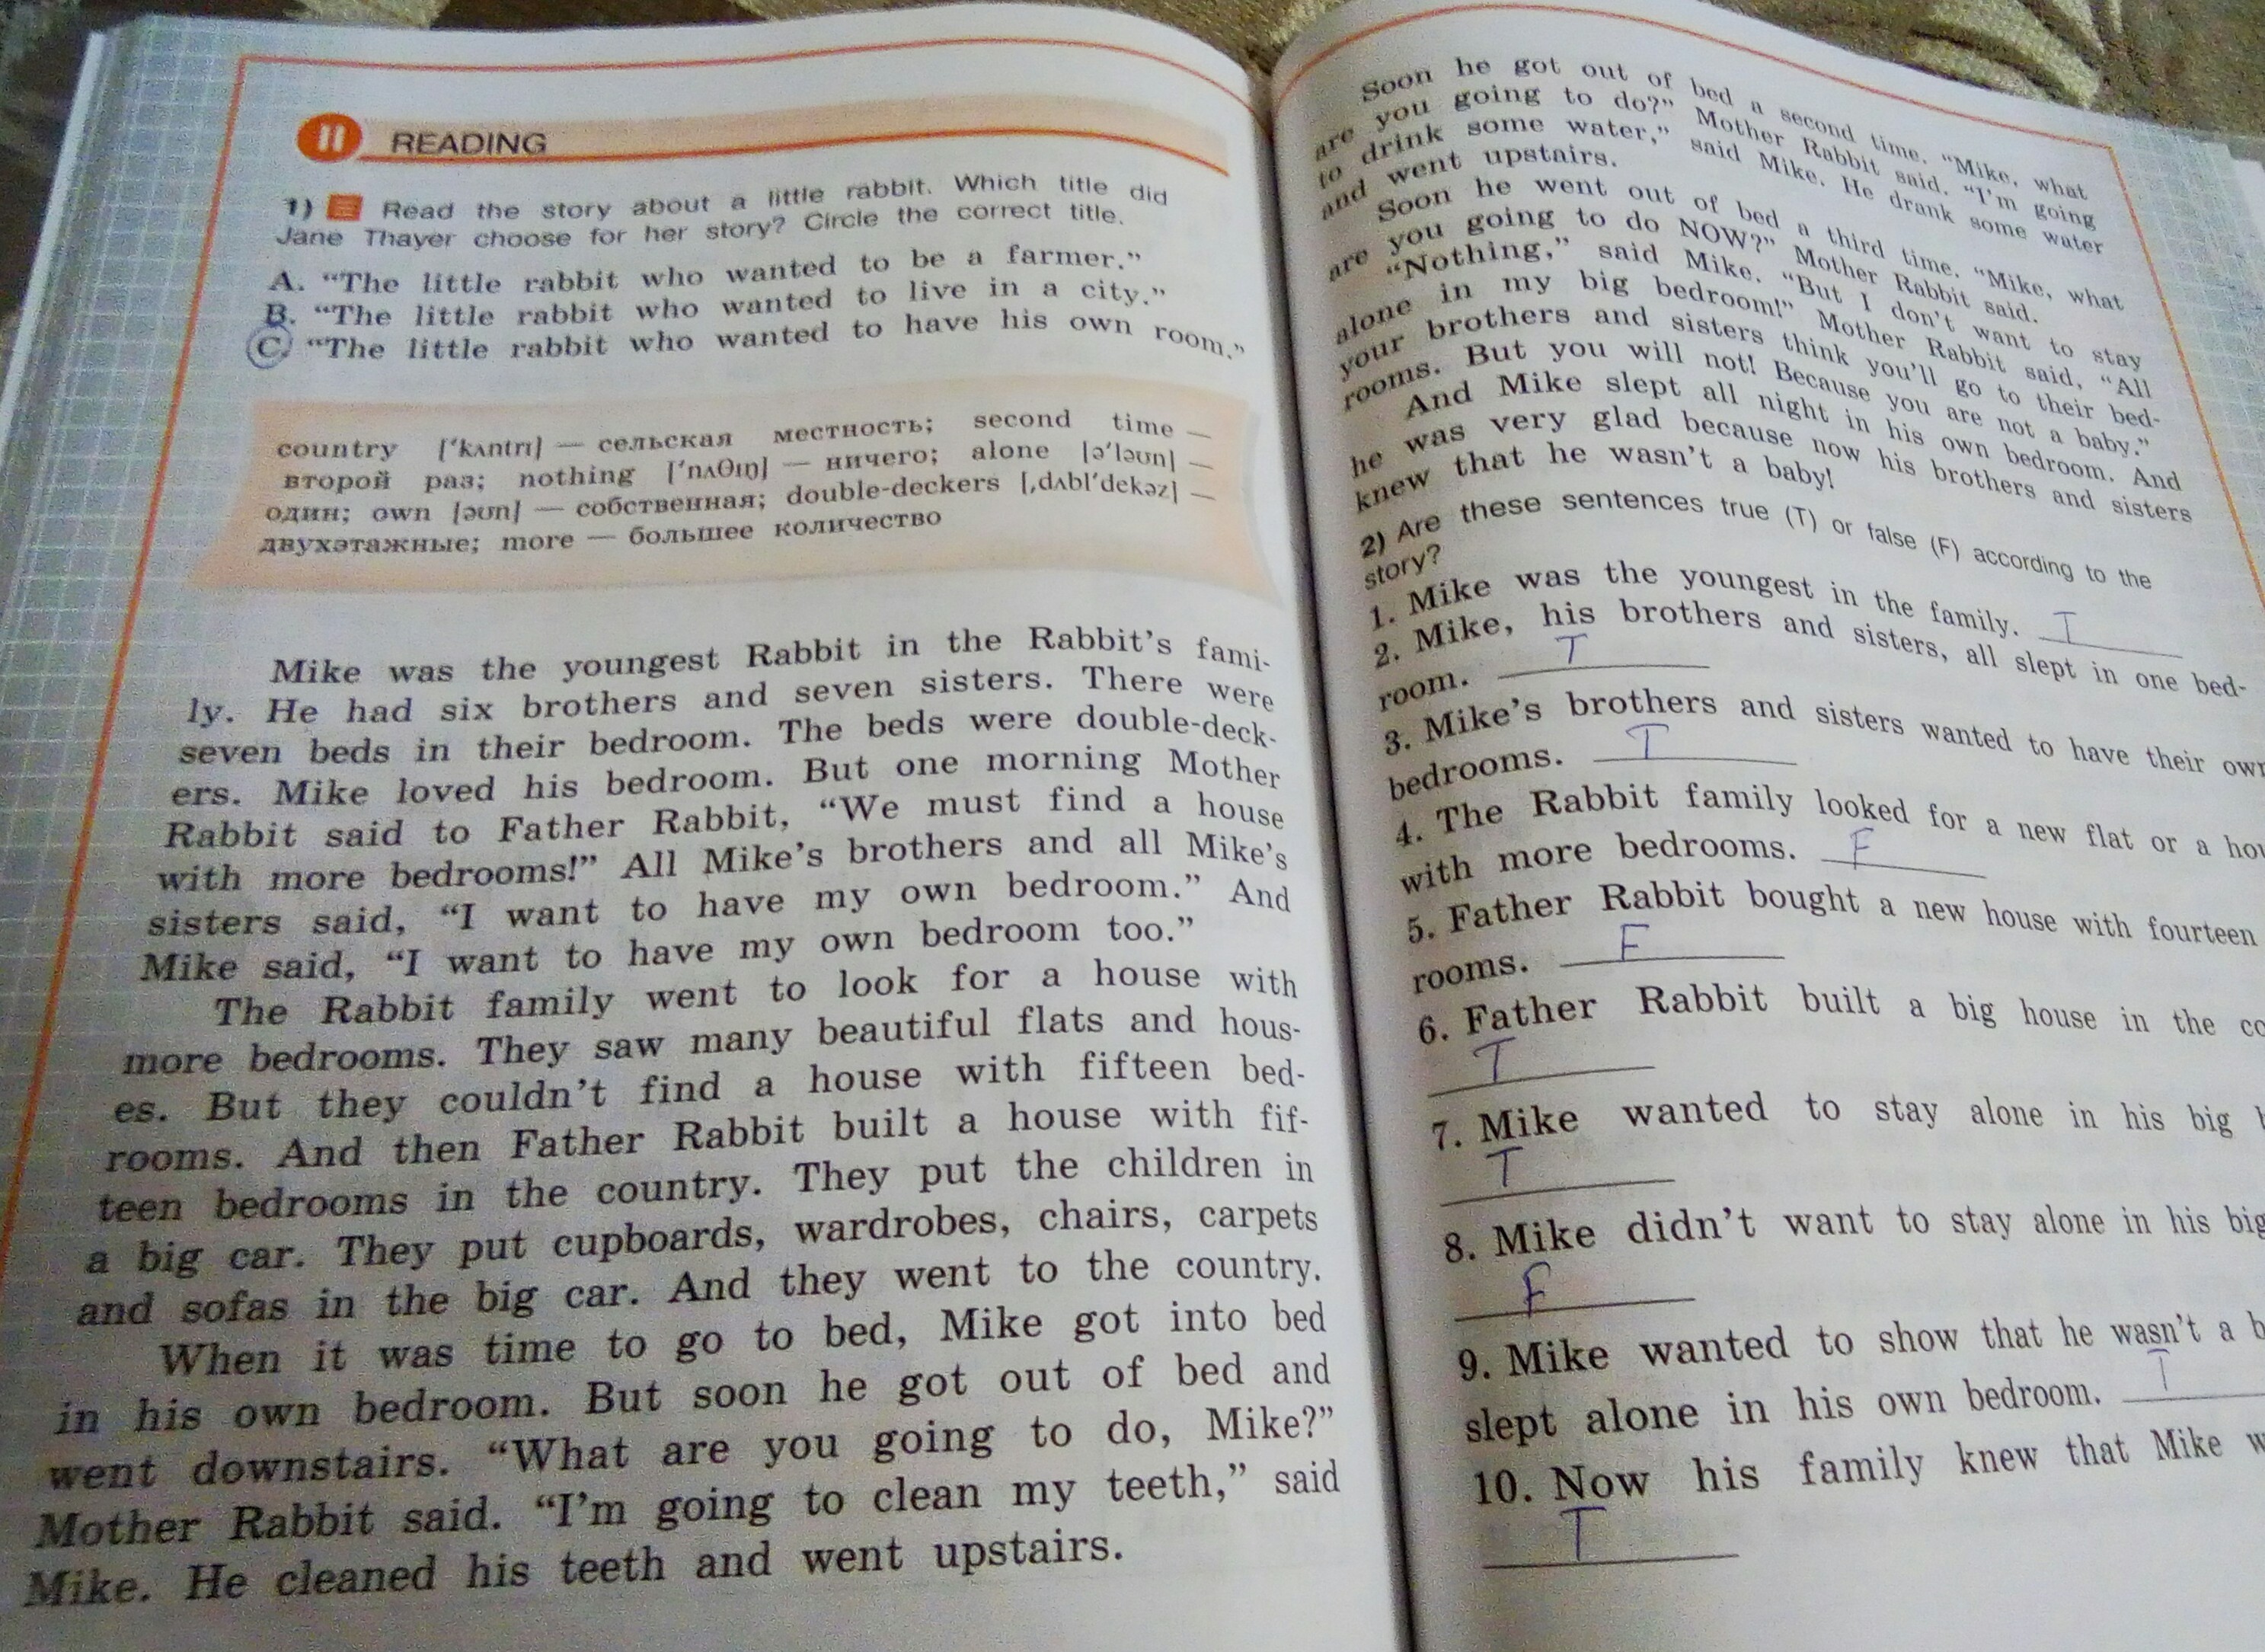 11 READING
1) Read the story about a little rabbit. Which title did
Jane Thayer choose for her story? Circle the correct title.
A. “The little rabbit who wanted to be a farmer.”
B. “The little rabbit who wanted to live in a city.”
C. “The little rabbit who wanted to have his own room.”
country [ʹkʌntrɪ] — сельская местность; second time —
второй раз; nothing [ʹnʌθɪŋ] — ничего; alone [əʹləʊn] —
один; own [əʊn] — собственная; double-deckers [ˌdʌblʹdekəz] —
двухэтажные; more — большее количество
Mike was the youngest Rabbit in the Rabbit’s fami-
ly. He had six brothers and seven sisters. There were
seven beds in their bedroom. The beds were double-deck-
ers. Mike loved his bedroom. But one morning Mother
Rabbit said to Father Rabbit, “We must find a house
with more bedrooms!” All Mike’s brothers and all Mike’s
sisters said, “I want to have my own bedroom.” And
Mike said, “I want to have my own bedroom too.”
The Rabbit family went to look for a house with
more bedrooms. They saw many beautiful flats and hous-
es. But they couldn’t find a house with fifteen bed-
rooms. And then Father Rabbit built a house with fif-
teen bedrooms in the country. They put the children in
a big car. They put cupboards, wardrobes, chairs, carpets
and sofas in the big car. And they went to the country.
When it was time to go to bed, Mike got into bed
in his own bedroom. But soon he got out of bed and
went downstairs. “What are you going to do, Mike?”
Mother Rabbit said. “I’m going to clean my teeth,” said
Mike. He cleaned his teeth and went upstairs.
Soon he got out of bed a second time. “Mike, what
are you going to do?” Mother Rabbit said. “I’m going
to drink some water,” said Mike. He drank some water
and went upstairs.
Soon he went out of bed a third time. “Mike, what
are you going to do NOW?” Mother Rabbit said.
“Nothing,” said Mike. “But I don’t want to stay
alone in my big bedroom!” Mother Rabbit said, “All
your brothers and sisters think you’ll go to their bed-
rooms. But you will not! Because you are not a baby.”
And Mike slept all night in his own bedroom. And
he was very glad because now his brothers and sisters
knew that he wasn’t a baby!
2) Are these sentences true (T) or false (F) according to the
story?
1. Mike was the youngest in the family. T
2. Mike, his brothers and sisters, all slept in one bed-
room. T
3. Mike’s brothers and sisters wanted to have their own
bedrooms. T
4. The Rabbit family looked for a new flat or a
with more bedrooms. F
5. Father Rabbit bought a new house with fourteen
rooms. F
6. Father Rabbit built a big house in the
T
7. Mike wanted to stay alone in his big
T
8. Mike didn’t want to stay alone in his big
F
9. Mike wanted to show that he wasn’t a
slept alone in his own bedroom. T
10. Now his family knew that Mike
T